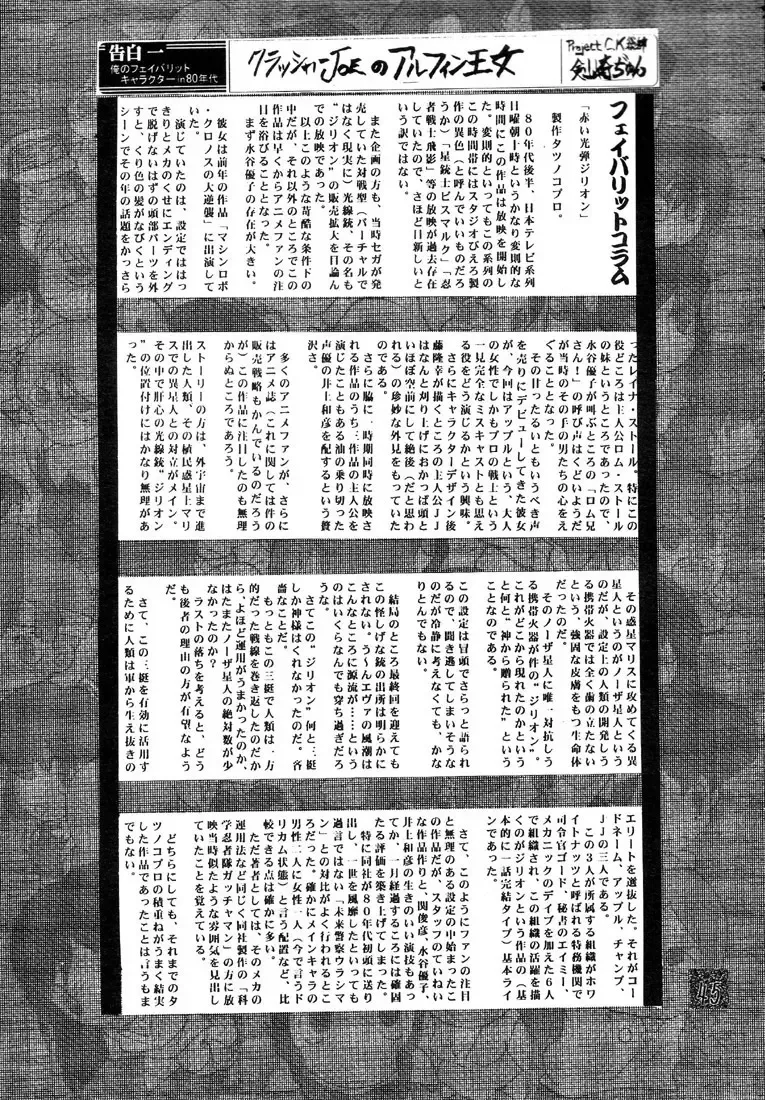 告白一
俺のフェイバリット
キャラクターin80年代
クラッシャーJOEのアルフィン王女
Project C.K.
フェイバリットコラム
「赤い光弾ジリオン」
製作タツノコプロ。
80年代後半、日本テレビ系列
日曜朝十時というかなり変則的な
時間にこの作品は放映を開始し
た。変則的といってもこの系列の
この時間帯にはスタジオぴえろ製
作の異色（と呼んでいいものだろ
うか）「星銃士ビスマルク」「忍
者戦士飛影」等の放映が過去存在
していたので、さほど目新しいと
いう訳ではない。
また企画の方も、当時セガが発
売していた対戦型（バーチャルで
はなく現実に）光線銃、その名も
“ジリオン”の販売拡大を目論ん
での放映であった。
以上このような苛酷な条件下の
中だが、それ以外のところでこの
作品は早くからアニメファンの注
目を浴びることとなった。
まず水谷優子の存在が大きい。
彼女は前年の作品「マシンロボ
・クロノスの大逆襲」に出演して
いた。
演じていたのは、設定でははっ
きりとメカのくせにエンディング
で脱げないはずの頭部パーツを外
すと、くり色の髪がなびくという
シーンでその年の話題をかっさら
ったレイナ・ストール。特にこの
役どころは主人公ロム・ストール
の妹というところであったので、
水谷優子が叫ぶところの「ロム兄
さん！」の呼び声はくどいようだ
が当時のその手の男たちの心をえ
ぐることとなった。
その甘ったるいともいうべき声
を売りにデビューしてきた彼女
が、今回はアップルという、大人
の女性でしかもプロの戦士という
一見完全なミスキャストとも思え
る役をどう演じるかという興味。
さらにキャラクターデザイン後
藤隆幸が描くところの主人公JJ
はなんと刈り上げにおかっぱ頭と
いうほぼ空前にして絶後（だと思わ
れる）の珍妙な外見をもっていた
のである。
さらに脇に一時期同時に放映さ
れる作品のうち三作品の主人公を
演じたこともある油の乗り切った
声優の井上和彦を配するという贅
沢さ。
多くのアニメファンが、さらに
はアニメ誌（これに関しては件の
販売戦略もかんでいるのだろう
が）この作品に注目したのも無理
からぬところであろう。
ストーリーの方は、外宇宙まで進
出した人類、その植民惑星マリ
スでの異星人との対立がメイン。
その中で肝心の光線銃“ジリオン
”の位置付けにはかなり無理があ
った。
その惑星マリスに攻めてくる異
星人というのがノーザ星人という
のだが、設定上の人類の開発しう
る携帯火器では全く歯の立たない
という、強固な皮膚をもつ生命体
だったのだ。
そのノーザ星人に唯一対抗しう
る携帯火器が件の“ジリオン。
これがどこから現れたのかという
と何と“神から贈られた”という
ことなのである。
この設定は冒頭でさらっと語られ
るので、聞き逃してしまいそうな
のだが冷静に考えなくても、かな
りとんでもない。
結局のところ最終回を迎えても
この怪しげな銃の出所は明らかに
されない。う〜んエヴァの風潮は
こんなところに源流が…という
のはいくらなんでも穿ち過ぎだろ
うな。
さてこの“ジリオン”何と三挺
しか神様はくれなかったのだ。吝
嗇なことだ。
もっともこの三挺で人類は一方
的だった戦線を巻き返したのだか
ら、よほど運用がうまかったのか、
はたまたノーザ星人の絶対数が少
なかったのか？
ラストの落ちを考えると、どう
も後者の理由の方が有望なよう
だ。
さて、この三挺を有効に活用す
るために人類は軍から生え抜きの
エリートを選抜した。それがコー
ドネーム、アップル、チャンプ、
JJの三人である。
この3人が所属する組織がホワ
イトナッツと呼ばれる特務機関で
司令官ゴード、秘書のエイミー、
メカニックのデイブを加えた6人
で組織され、この組織の活躍を描
くのがジリオンという作品の（基
本的に一話完結タイプ）基本ライ
ンであった。
さて、このようにファンの注目
と無理のある設定の中始まったこ
の作品だが、スタッフのていねい
な作品作りと、関俊彦、水谷優子、
井上和彦の生きのいい演技もあっ
てか、一月経過するころには確固
たる評価を築き上げてしまった。
特に同社が80年代初頭に送り
出し、一世を風靡したといっても
過言ではない「未来警察ウラシマ
ン」との対比がよく行われるとこ
ろだった。確かにメインキャラの
男性二人に女性一人（今で言うド
リカム状態）と言う配置など、比
較できる点は確かに多い。
ただ著者としては、そのメカの
運用法など同じく同社製作の「科
学忍者隊ガッチャマン」の方に放
映当時似たような雰囲気を見出し
ていたことを覚えている。
どちらにしても、それまでのタ
ツノコプロの積重ねがうまく結実
した作品であったことは言うもま
でもない。
15